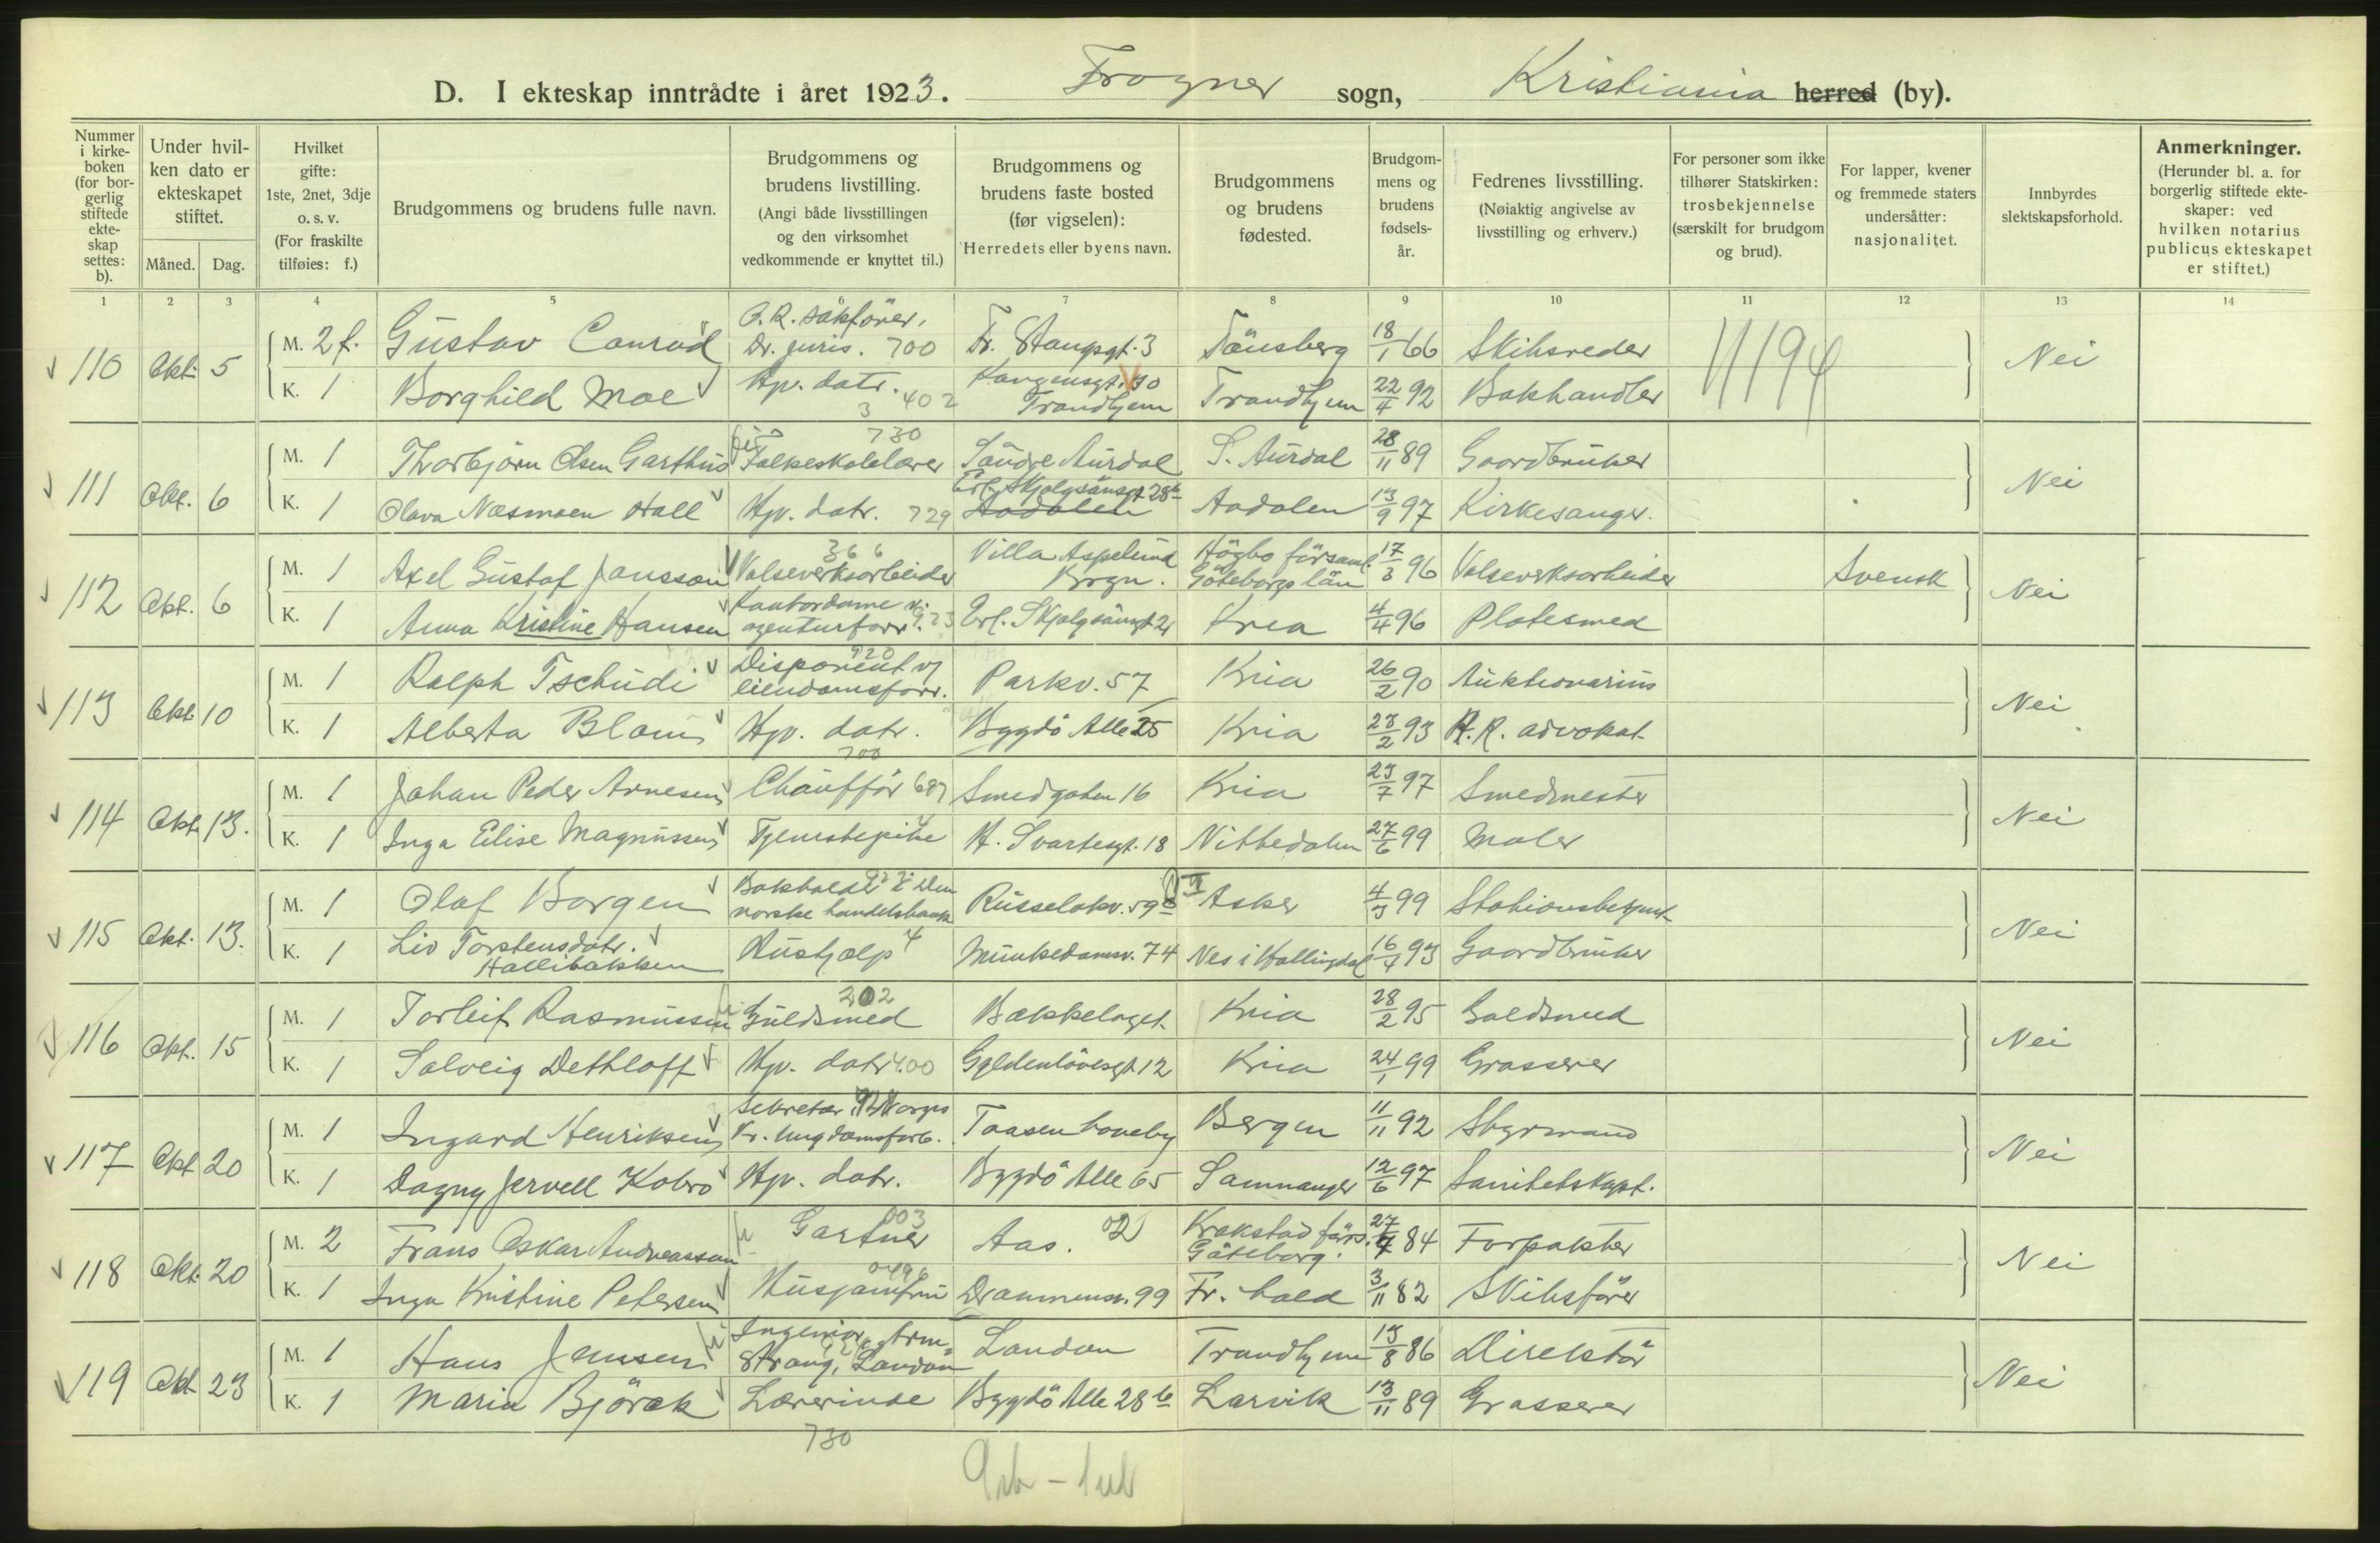 D. I ekteskap inntrådte i året 1923. Frogner sogn, Kristiania herred (by).
Nummer i kirke-boken (for bor-gerlig stiftede ekte-skap settes: b).
Under hvil-ken dato er ekteskapet stiftet.
Måned. Dag.
Hvilket gifte: 1ste, 2net, 3dje o. s. v. (For fraskilte tilføies: f.)
Brudgommens og brudens fulle navn.
Brudgommens og brudens livstilling. (Angi både livsstillingen og den virksomhet vedkommende er knyttet til.)
Brudgommens og brudens faste bosted (før vigselen): Herredets eller byens navn.
Brudgommens og brudens fødested.
Brudgom-mens og brudens fødsels-år.
Fedrenes livsstilling. (Nøiaktig angivelse av livsstilling og erhverv.)
For personer som ikke tilhører Statskirken: trosbekjennelse (særskilt for brudgom og brud).
For lapper, kvener og fremmede staters undersåtter: nasjonalitet.
Innbyrdes slektskapsforhold.
Anmerkninger. (Herunder bl. a. for borgerlig stiftede ekte-skaper: ved hvilken notarius publicus ekteskapet er stiftet.)
1 2 3 4 5 6 7 8 9 10 11 12 13 14
110 Okt. 5 M. 2 f. Gustav Conrad O.R. sakförer, Dr. juris. 700 Fr. Stangsgt. 3 Tönsberg 18/1 66 Skibsreder Nei
K. 1 Borghild Moe Hjv. datr. 3 402 Kongensgt. 30 Trondhjem Trondhjem 22/4 92 Bokhandler
111 Okt. 6 M. 1 Thorbjörn Olsen Garthus Folkeskolelærer 730 Söndre Aurdal S. Aurdal 28/11 89 Gaardbruker Nei
K. 1 Olava Næsmoen Hall Hjv. datr. 729 Erl. Skjalgsönsgt 28b Aadalen Aadalen 13/9 97 Kirkesanger.
112 Okt. 6 M. 1 Axel Gustaf Jansson Valseverksarbeider 366 Villa Aspelund Brgn. Högbo församl. Göteborgs län 17/3 96 Valseverksarbeider Svensk Nei
K. 1 Anna Kristine Hansen Kontordame v. agenturforr. 923 Erl. Skjalgsönsgt 21 Kria 4/4 96 Platesmed
113 Okt. 10 M. 1 Ralph Tschudi Disponent v/ eiendomsforr. 920 Parkv. 57 Kria 26/2 90 Auktionarius Nei
K. 1 Alberta Blom Hjv. datr. 700 Bygdö Alle 25 Kria 23/2 93 H.R. advokat
114 Okt. 13. M. 1 Johan Peder Arnesen Chaufför 687 Smedgaten 16 Kria 23/7 97 Smedmester Nei
K. 1 Inga Elise Magnussen Tjenestepike H. Svartesgt. 18 Nittedalen 27/6 99 Maler
115 Okt. 13. M. 1 Olaf Borgen Bokholder i Den norske handelsbank Russelökv. 59 Asker 4/3 99 Stationsbetjent Nei
K. 1 Liv Torstensdatr. Hallibakken Hushjælp 4 Munkedamsv. 74 Nes i Hallingdal 16/4 93 Gaardbruker
116 Okt. 15 M. 1 Torleif Rasmussen Guldsmed 202 Bækkelaget Kria 28/2 95 Guldsmed Nei
K. 1 Solveig Dethloff Hjv. datr 400 Gyldenlövesgt 12 Kria 24/1 99 Grosserer
117 Okt 20 M. 1 Ingard Henriksen Sekretær i Norges Kr. Ungdomsforb. Taasen haveby Bergen 11/11 92 Styrmand Nei
K. 1 Dagny Jervell Kobro Hjv. datr. Bygdö Alle 65 Samnanger 12/6 97 Sanitetskapt.
118 Okt. 20 M. 2 Frans Oskar Andreassen Gartner 003 Aas. 02 Krokstad förs. Göteborg. 27/4 84 Forpakter Nei
K. 1 Inga Kristine Petersen Husjomfru Drammensv. 99 Fr. hald 3/11 82 Skibsförer
119 Okt 23 M. 1 Hans Jensen Ingeniör, Arm-strong, London London Trondhjem 13/8 86 Direktör Nei
K. 1 Maria Björck Lærerinde 730 Bygdö Alle 28b Larvik 13/11 89 Grosserer